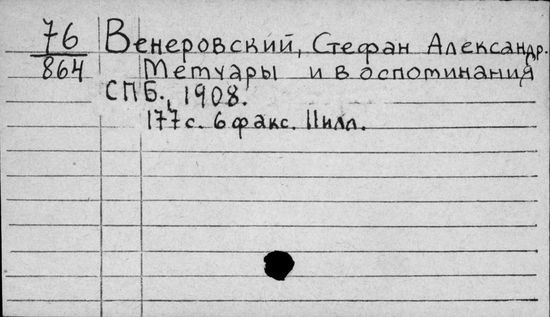 76 Венеровский, Стефан Александр.
864 Метуары и воспоминания
СПБ., 1908.
177с. 6 факс. 11илл.